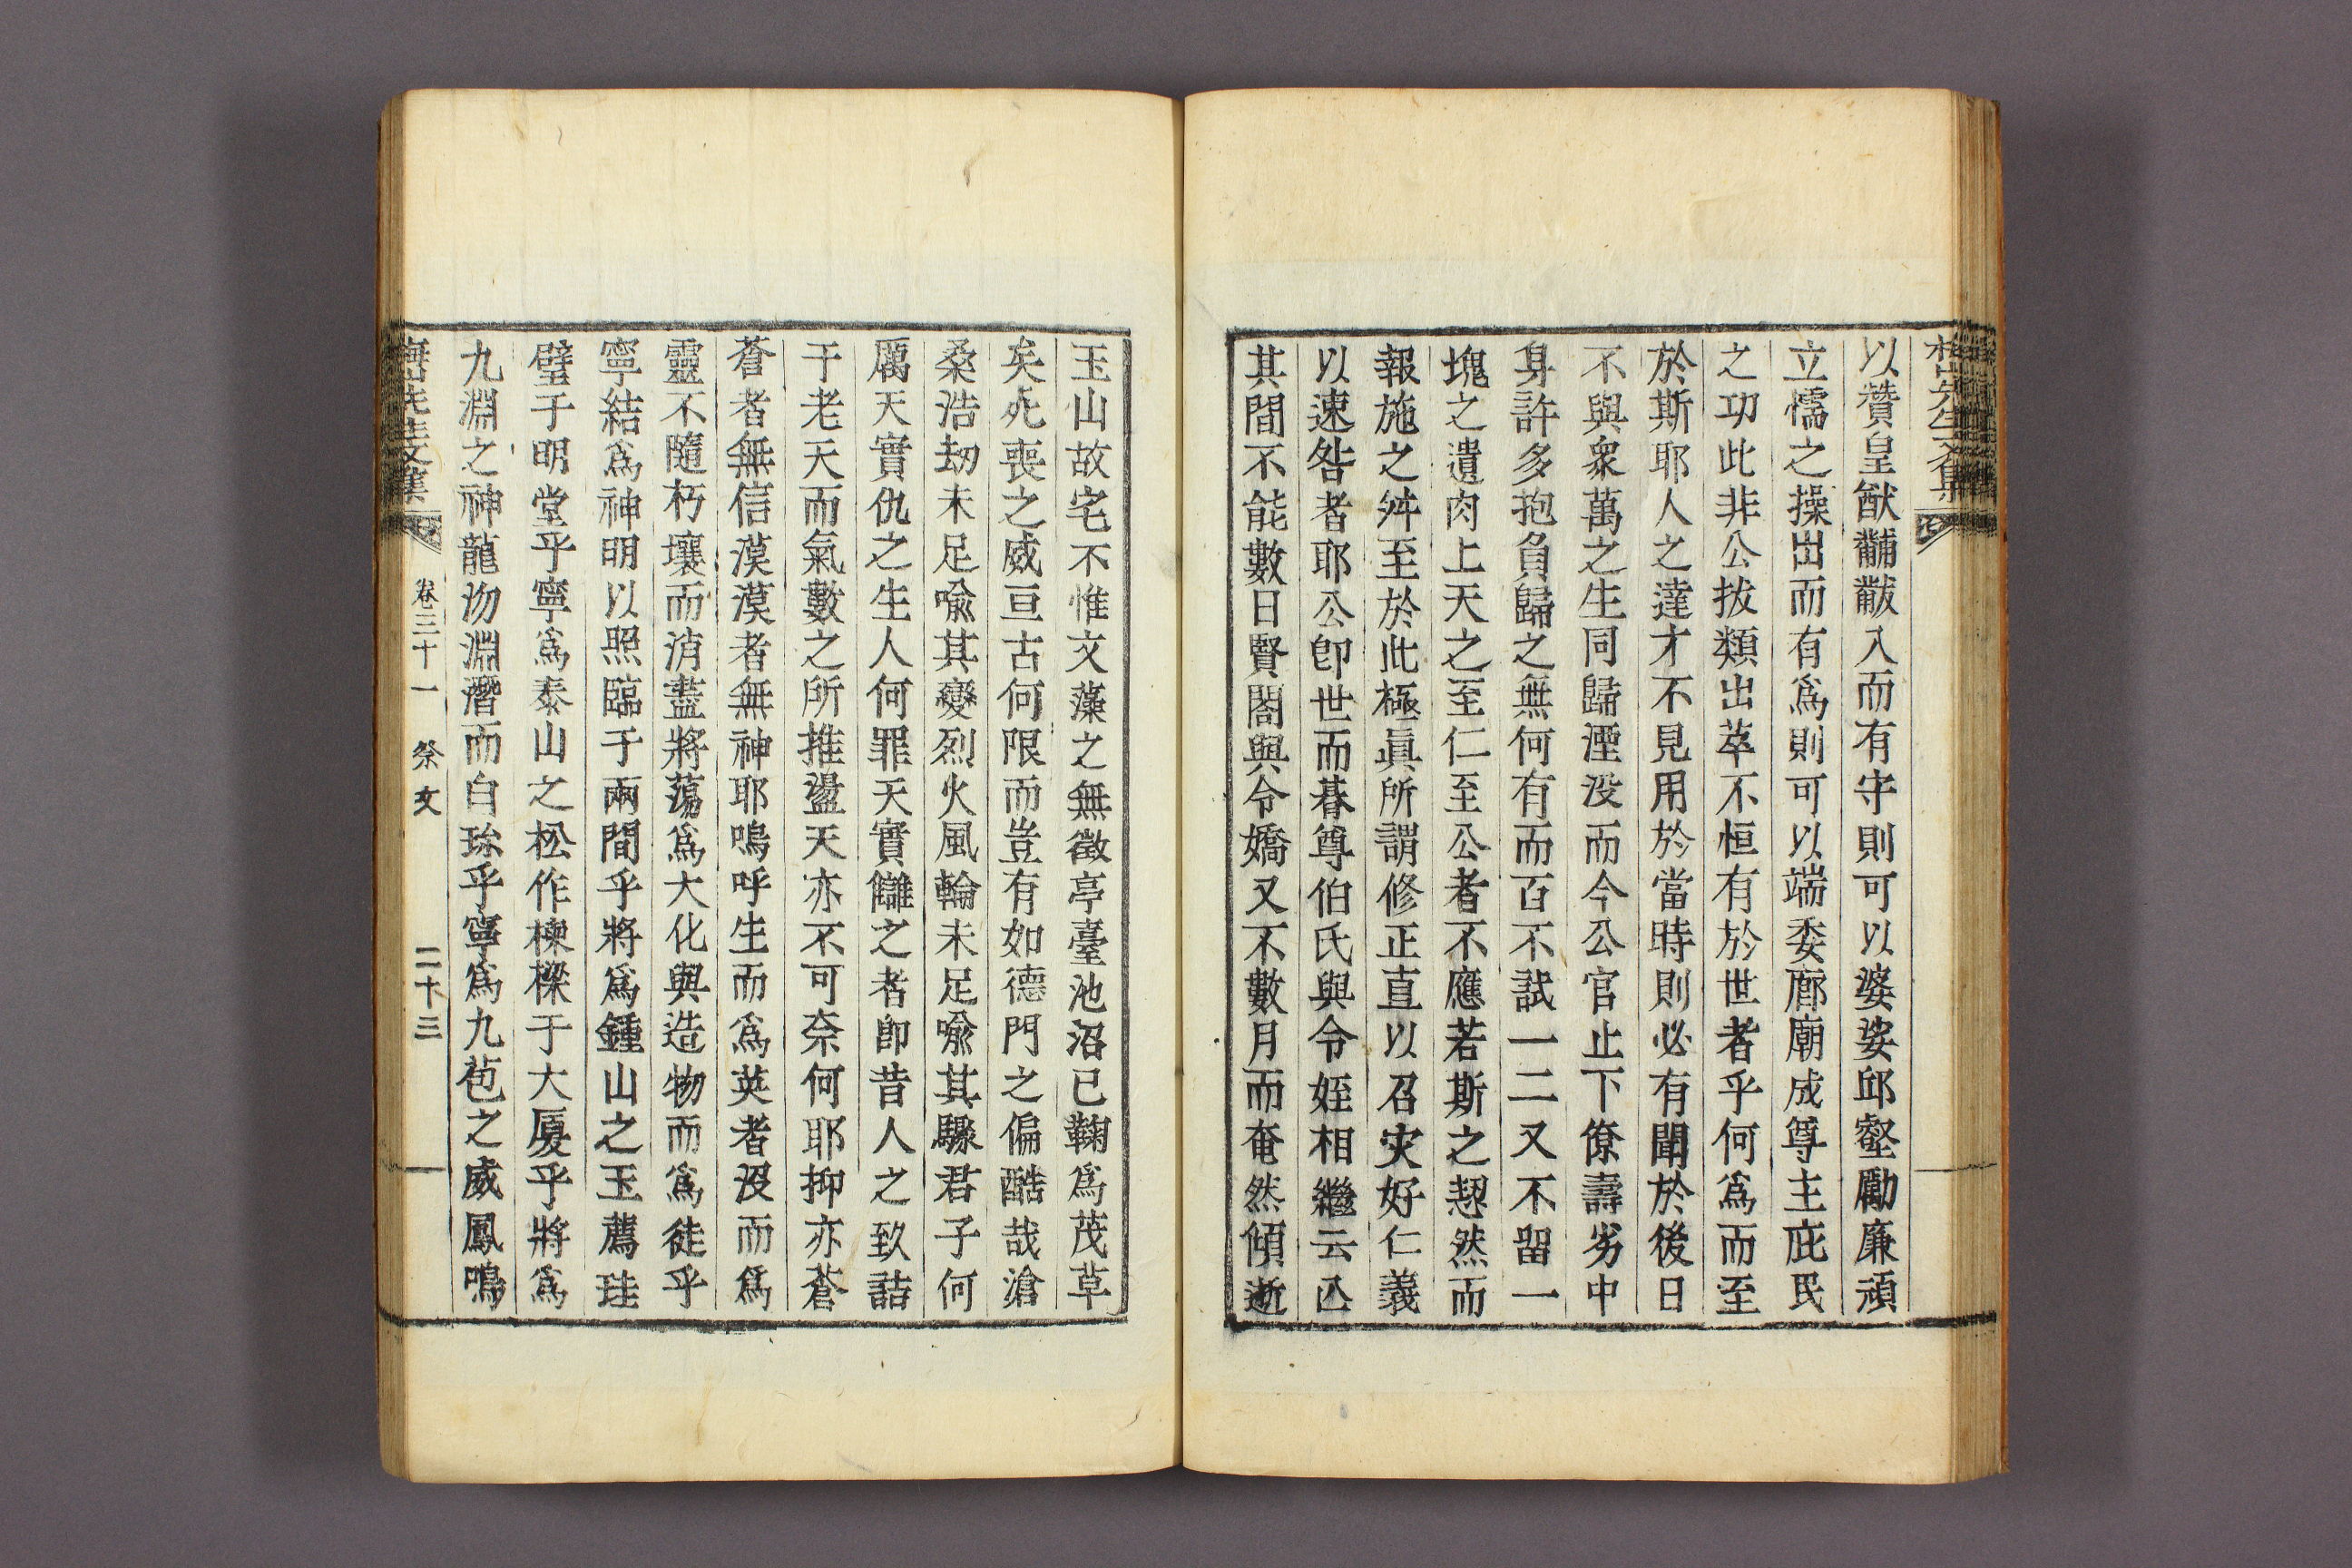 梅山先生文集
以贊皇猷黼黻入而有守則可以婆娑邱壑勵廉頑
立懦之操出而有爲則可以端委廊廟成尊主庇民
之功此非公拔類出萃不恒有於世者乎何爲而至
於斯耶人之達才不見用於當時則必有聞於後日
不與衆萬之生同歸湮没而今公官止下僚壽劣中
身許多抱負歸之無何有而百不試一二又不留一
塊之遺肉上天之至仁至公者不應若斯之恝然而
報施之舛至於此極眞所謂修正直以召灾好仁義
以速咎者耶公卽世而朞尊伯氏與令姪相繼云亾
其間不能數日賢閤與令嬌又不數月而奄然傾逝
玉山故宅不惟文藻之無徵亭臺池沼已鞠爲茂草
矣死喪之威亘古何限而豈有如德門之偏酷哉滄
桑浩刼未足喩其變烈火風輪未足喩其驟君子何
厲天實仇之生人何罪天實讎之者卽昔人之致詰
于老天而氣數之所推盪天亦不可奈何耶抑亦蒼
蒼者無信漠漠者無神耶嗚呼生而爲英者没而爲
靈不隨朽壤而消盡將蕩爲大化與造物而爲徒乎
寧結爲神明以照臨于兩間乎將爲鍾山之玉薦珪
璧于明堂乎寧爲泰山之松作棟樑于大厦乎將爲
九淵之神龍沕淵潛而白珎乎寧爲九苞之威鳳鳴
梅山先生文集 卷三十一 祭文 二十三